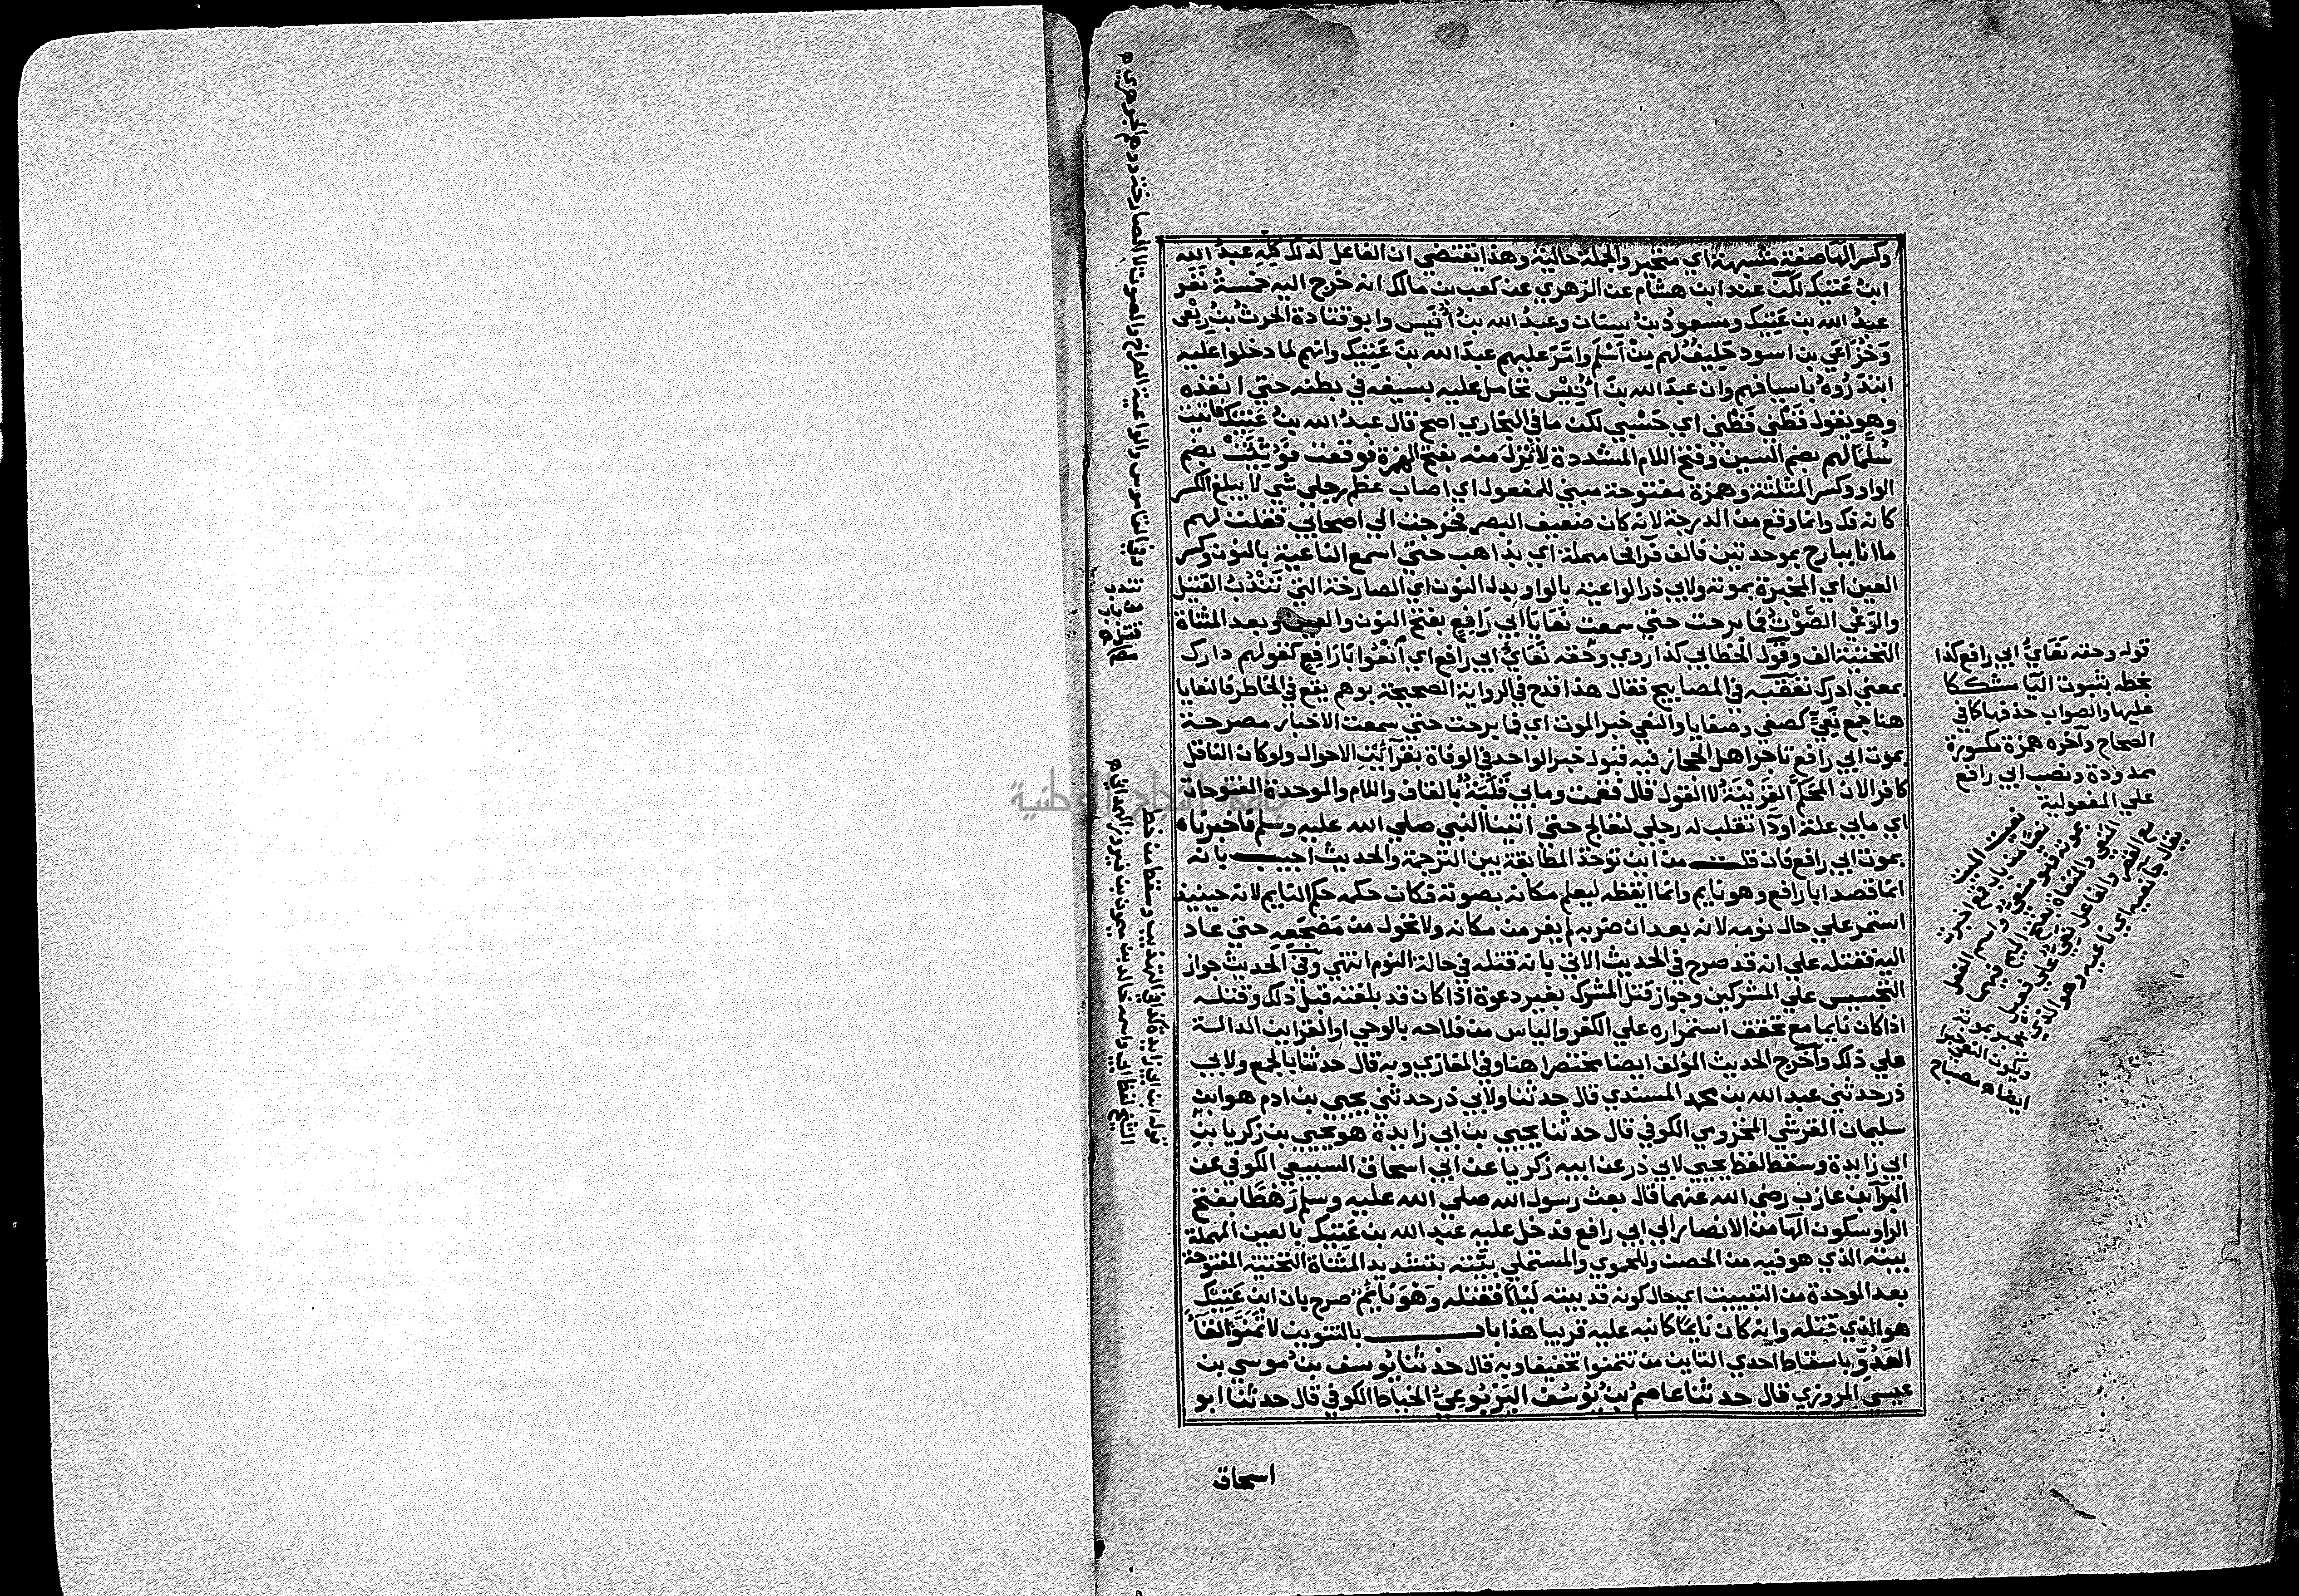 وكسر الها صفة مشبهة اي متحير والجملة حالية وهذا يقتضي ان الفاعل لذلك كله عبد الله
ابن عَتيك لكن عند ابن هشام عن الزهري عن كعب بن مالك انه خرج اليه خمسة نفر
عبدُ الله بن عَتِيك ومسعودُ بنُ سنان وعبدُ الله بنُ أُنَيس وابو قتادة الحرثُ بنُ رِبْعي
وَخُزَاعَي بن اسود حَلِيفٌ لهم مِنْ اَسْلَم وامَّرَ عليهم عبدَ الله بنَ عَتيك وانهم لما دخلوا عليه
ابتدرُوهُ باسيافهم وان عبدَ الله بنَ أُنَيْس تحامل عليه بسيفه في بطنه حتي انفذه
وهو يقول قَطْني قَطْني اي حَسْبي لكن ما في البخاري اصح قال عبدُ الله بنُ عَتِيك فاتيت
سُلَّمًا لهم بضم السين وفتح اللام المشددة لِاَنْزِلَ منه بفتح الهمزة فوقعت فَوُثِئَتْ بضم
الواو وكسر المثلثة وهمزة مفتوحة مبني للمفعول اي اصاب عظم رجلي شي لا يبلغ الكسر
كانه فك وانما وقع من الدرجة لانه كان ضعيف البصر فخرجت الي اصحابي فقلت لهم
ما انا ببارح بموحدتين فالف فرا فحا مهملة اي بذاهب حتي اسمع الناعية بالنون وكسر
العين اي المخبرة بموته ولابي ذر الواعية بالواو بدل النون اي الصارخة التي تَنْدُبُ القتيل
والوَعْي الصَّوْتُ فما برحت حتي سمعت نَعَايَا ابي رَافِعٍ بفتح النون والعين وبعد المثناة
التحتية الف وقول الخطابي كذا روي وحقه نَعَايُ ابي رافع اي انْعُوا ابا رافِعٍ كقولهم دارك
بمعني ادرك تعقبه في المصابيح فقال هذا قدح في الرواية الصحيحة بوهم يقع في الخاطر فالنعايا
هنا جمع نَعِيٍّ كصفي وصفايا والنعي خبر الموت اي فما برحت حتي سمعت الاخبار مصرحة
بموت ابي رافع تاجر اهل الحجاز فيه قبول خبر الواحد في الوفاة بقرآئن الاحوال ولو كان الناقل
كافرا لان المحكَّمَ القرينةُ لا القول قال فقمت ومابي قَلَبَةٌ بالقاف واللام والموحدة المفتوحات
اي مابي علة او داٌ تقلب له رجلي لتعالج حتي اتينا النبي صلي الله عليه وسلم فاخبرناه
بموت ابي رافع فان قلت من اين تؤخذ المطابقة بين الترجمة والحديث اجيب بانه
انما قصد ابا رافع وهو نايم وانما ايقظه ليعلم مكانه بصوته فكان حكمه حكم النايم لانه حينيذ
استمر علي حال نومه لانه بعد ان ضربه لم يفر من مكانه ولا تحول من مَضْجَعِهِ حتي عاد
اليه فقتله علي انه قد صرح في الحديث الاتي بانه قتله في حالة النوم انتهي وفي الحديث جواز
التجسيس علي المشركين وجواز قتل المشرك بغير دعوة اذا كان قد بلغته قبل ذلك وقتله
اذا كان نايما مع تحقق استمراره علي الكفر والياس من فلاحه بالوحي او القراين الدالة
علي ذلك وأخرج الحديث المؤلف ايضا مختصرا هنا وفي المغازي وبه قال حدثنا بالجمع ولابي
ذر حدثني عبد الله بن محمد المسندي قال حدثنا ولابي ذر حدثني يحيي بن ادم هو ابن
سليمان القرشي المخزومي الكوفي قال حدثنا يحيي بن ابي زايدة هو يحيي بن زكريا بنِ
ابي زايدة وسقط لفظ يحيي لابي ذر عن ابيه زكريا عن ابي اسحاق السبيعي الكوفي عن
البرآء بن عازب رضي الله عنهما قال بعث رسول الله صلي الله عليه وسلم رَهْطًا بفتح
الرا وسكون الها من الانصار الي ابي رافع فدخل عليه عبد الله بن عَتِيك بالعين المهملة
بيته الذي هو فيه من الحصن وللحموي والمستملي بيَّته بتشديد المثناة التحتية المفتوحة
بعد الموحدة من التبييت اي حال كونه قد بيته لَيْلًا فقتله وَهْوَ نَايِمٌ صرح بان ابنَ عَتِيك
هو الذي قتله وانه كان نايمًا كما نبه عليه قريبا هذا باب بالتنوين لا تَمَنَّوْا لقاءَ
العَدُوِّ باسقاط احدي التاين من تتمنوا تخفيفا وبه قال حدثنا يُوسف بنُ مُوسي بن
عيسي المروزي قال حدثنا عاصمُ بنُ يُوسُفَ اليَرْبُوعِيُّ الخياط الكوفي قال حدثنا ابو
اسحاق
قوله وحقه نَعَايُ ابي رافع كذا
بخطه بثبوت اليا مشككا
عليها والصواب حذفها كما في
الصحاح وآخره همزة مكسورة
ممدودة ونصب ابي رافع
علي المفعولية
نعيت الميت
نعيا من باب نفع اخبرت
بموته فهو منعي واسم الفعل
المنعي والمنعاة بفتح الميم فيهما
مع القصر والفاعل نعي علي فعيل
يقال جا نعيه اي ناعيه وهو الذي يخبر بموته
ويكون النعي خبرا
ايضا ه مصباح
وفي القاموس والواعية الصراخ والصوت لا الصارخة ووهم الجوهري ه
قوله ابن ابي زايدة كذا في التهذيب وسقط من خط
الشارح لفظ ابي واسمه خالد بن ميمون بن فيروز الهمداني ه
جامعة النجاح الوطنية